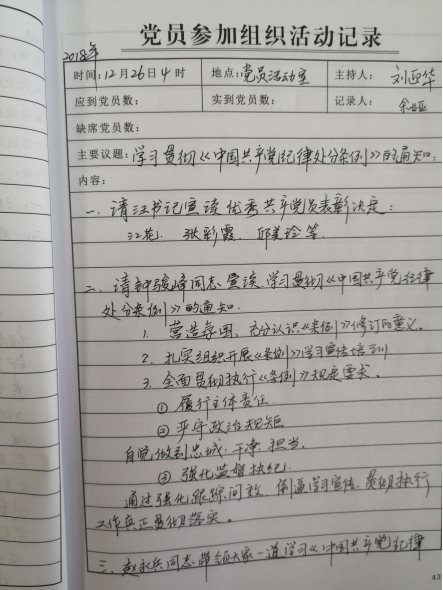 党员参加组织活动记录
2018年
时间:12月26日4时 地点:党员活动室 主持人:刘亚华
应到党员数: 实到党员数: 记录人:
缺席党员数:
主要议题:学习贯彻《中国共产党纪律处分条例》的通知.
内容:
一. 请汪书记宣读优秀共产党员表彰决定:
江花. 张彩霞. 邱美玲等.
二. 请钟骏峰同志宣读.学习贯彻《中国共产党纪律
处分条例》的通知.
1. 营造氛围. 充分认识《条例》修订的意义.
2. 扎实组织开展《条例》学习宣传培训
3. 全面贯彻执行《条例》规定要求.
① 履行主体责任.
② 严守政治规矩
自觉做到忠诚.干净.担当.
③ 强化监督执纪.
通过强化跟踪问效. 倒逼学习宣传.贯彻执行
工作真正贯彻落实。
三. 赵永兵同志带领大家一道学习《中国共产党纪律
43